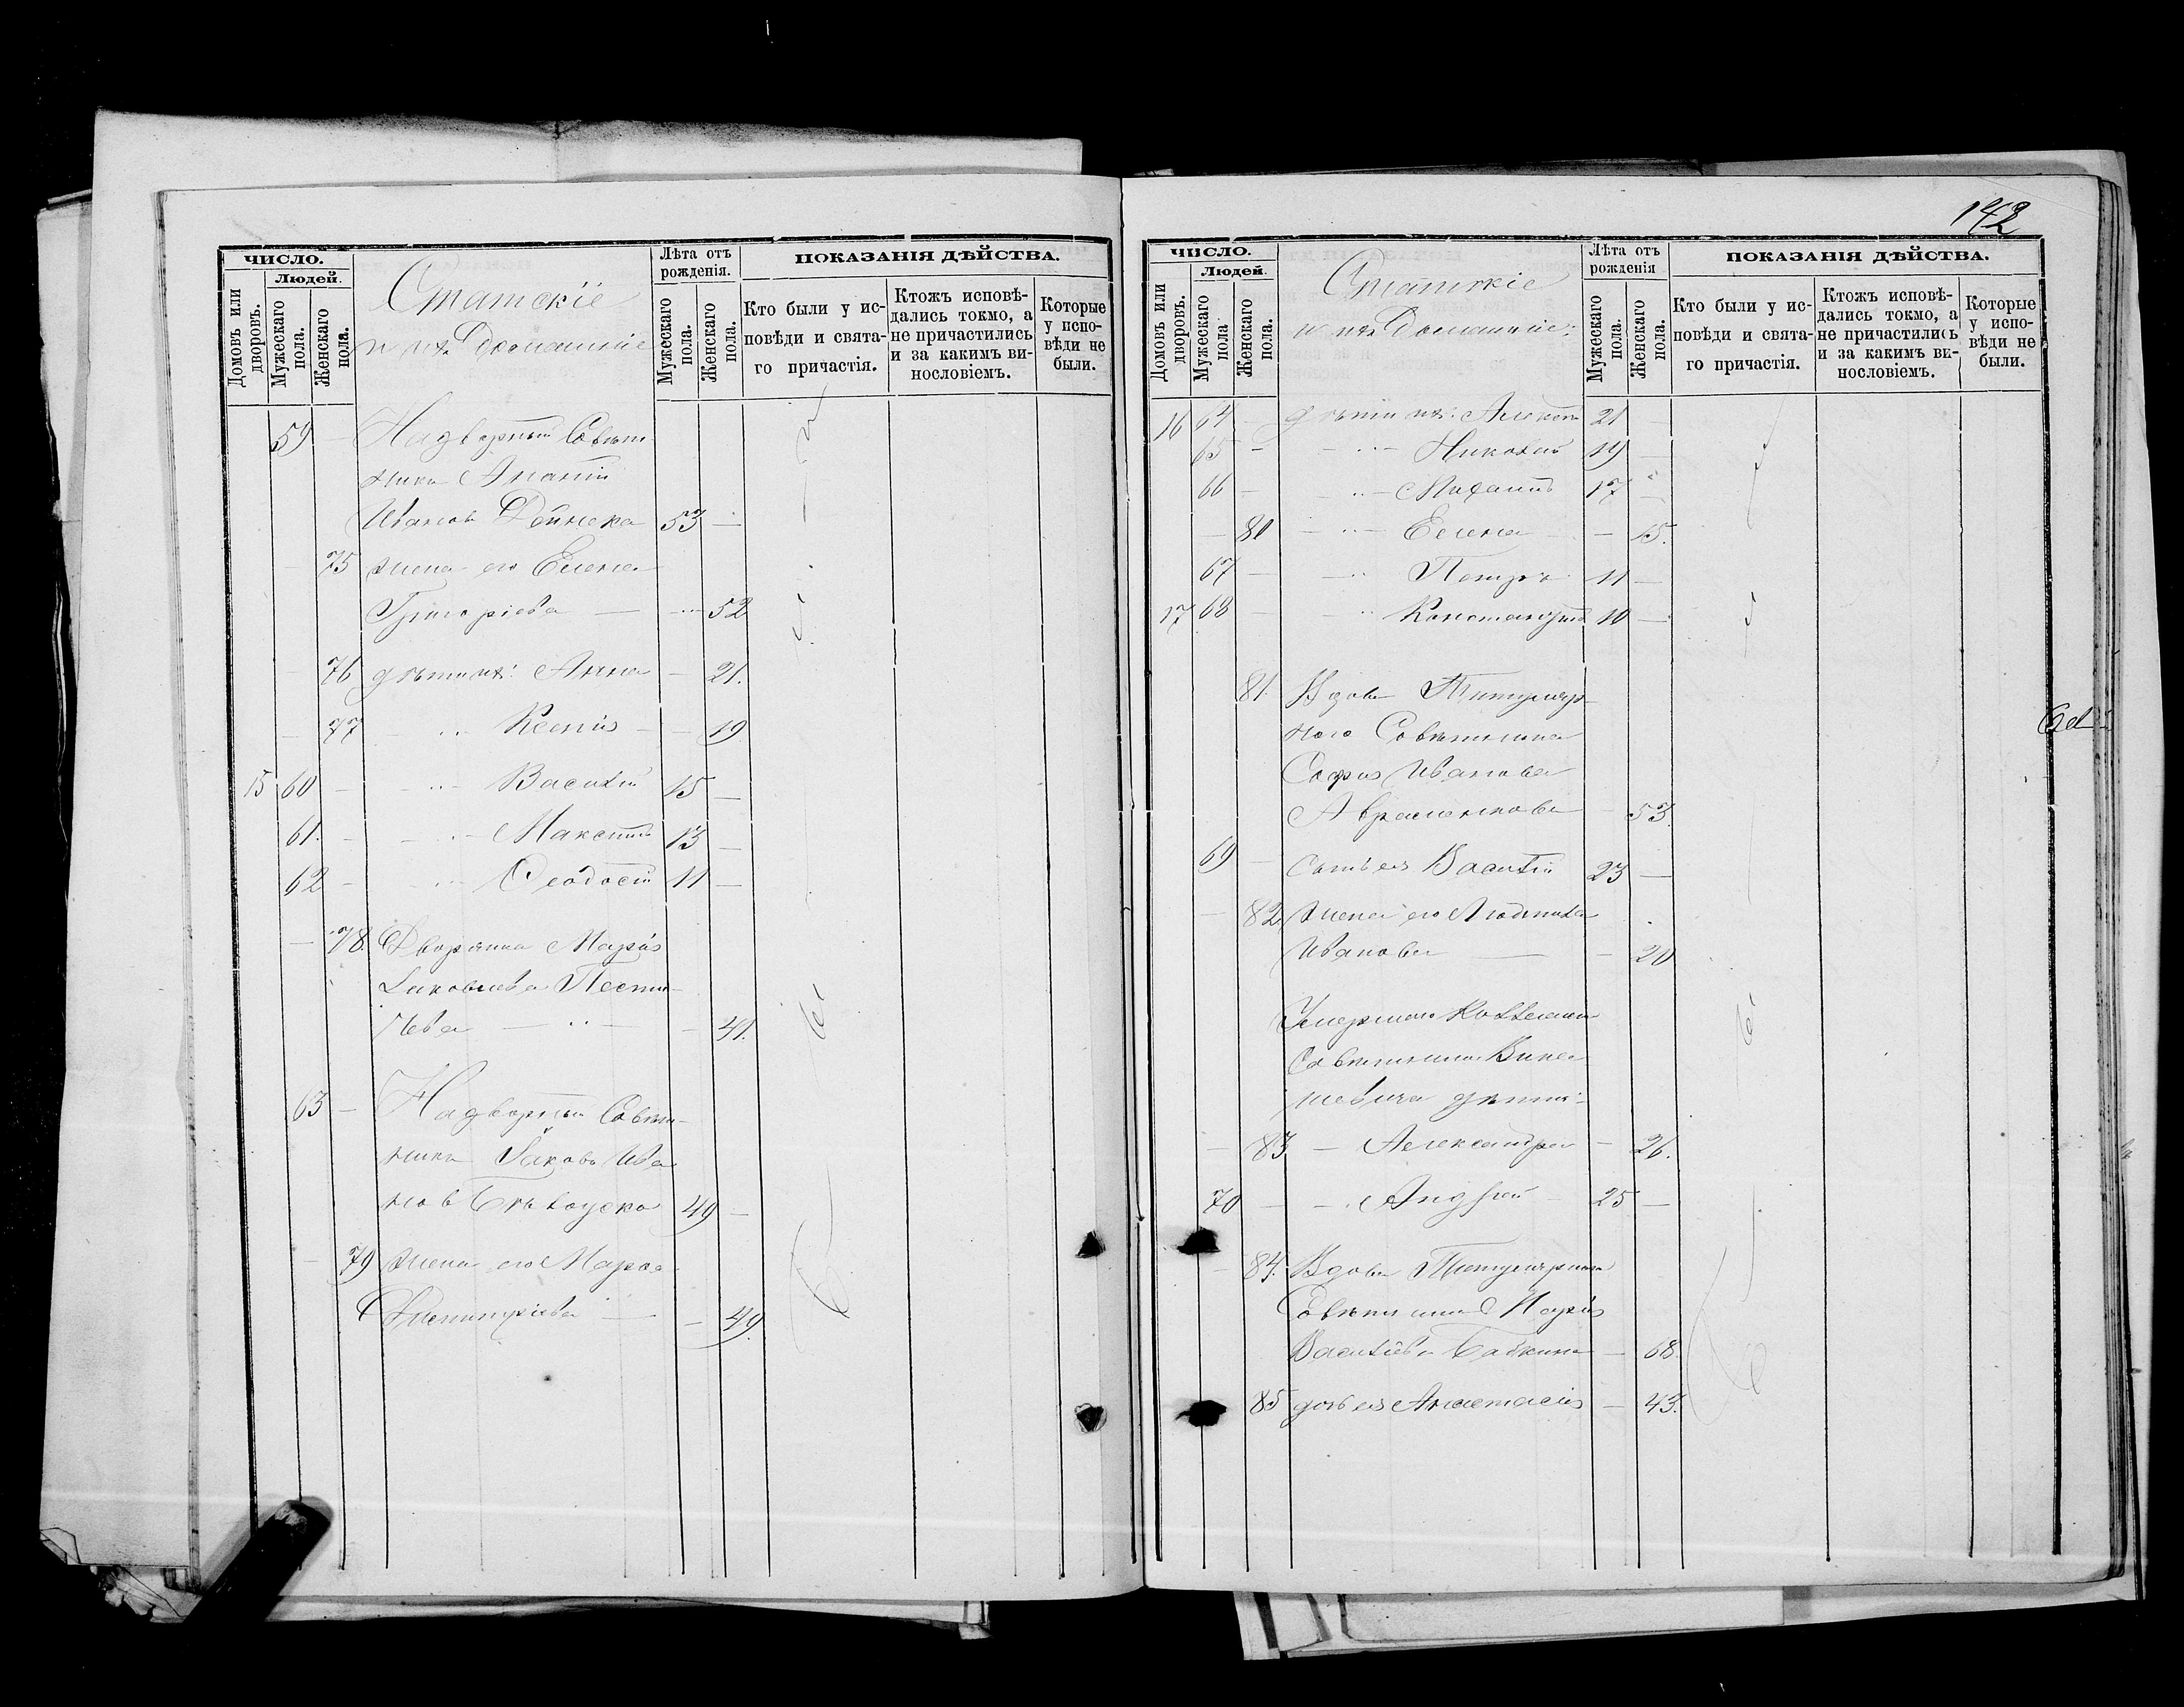 ЧИСЛО.
Людей.
Домовъ или дворовъ.
Мужескаго пола.
Женскаго пола.
Статскіе
и ихъ домашніе
Лѣта отъ рожденія.
Мужескаго пола.
Женскаго пола.
ПОКАЗАНІЯ ДѢЙСТВА.
Кто были у исповѣди и святаго причастія.
Ктожъ исповѣдались токмо, а не причастились и за какимъ винословіемъ.
Которые у исповѣди не были.
59 — Надворный Совѣт
никъ Ананій
Ивановъ Дейнека 53 —
— 75 жена его Елена
Григоріева — — 52
— 76 дѣти ихъ: Анна — 21.
— 77 — Ксенія — — 19
15 60 — Василій 15 —
61. — Максимъ 13 —
62 — Ѳеодосій 11 —
— 78. Дворянка Марія
Яковлева
— — 41.
63 — Надворный Совѣт-
никъ Іаковъ Ива
новъ 49 —
— 79 жена его Марѳа
Димитріева — — 49.
142
ЧИСЛО.
Людей.
Домовъ или дворовъ.
Мужескаго пола
Женскаго пола.
Статскіе
и ихъ домашніе:
Лѣта отъ рожденія
Мужескаго пола.
Женскаго пола.
ПОКАЗАНІЯ ДѢЙСТВА.
Кто были у исповѣди и святаго причастія.
Ктожъ исповѣдались токмо, а не причастились и за какимъ винословіемъ.
Которые у исповѣди не были.
16 64 — дѣти ихъ: 21 —
65 — Николай 19 —
66 — Михаилъ 17 —
— 80 — Елена — 15.
67 — Петръ 11 —
17 68 — Константинъ 10 —
81. Вдова Титуляр-
наго Совѣтника
Софія Иванова
Авраменкова — 53.
69 — Сынъ ея Василій 23 —
— 82. жена его Людмила
Иванова — — 20
Умершаго Коллежск
Совѣтника
дѣти:
— 83 — Александра — 26.
70 — Андрей — 25 —
— 84. Вдова Титулярнаго
Совѣтника Марія
Василіева Бабкина — 68.
85 дочь ея Анастасія — 43.